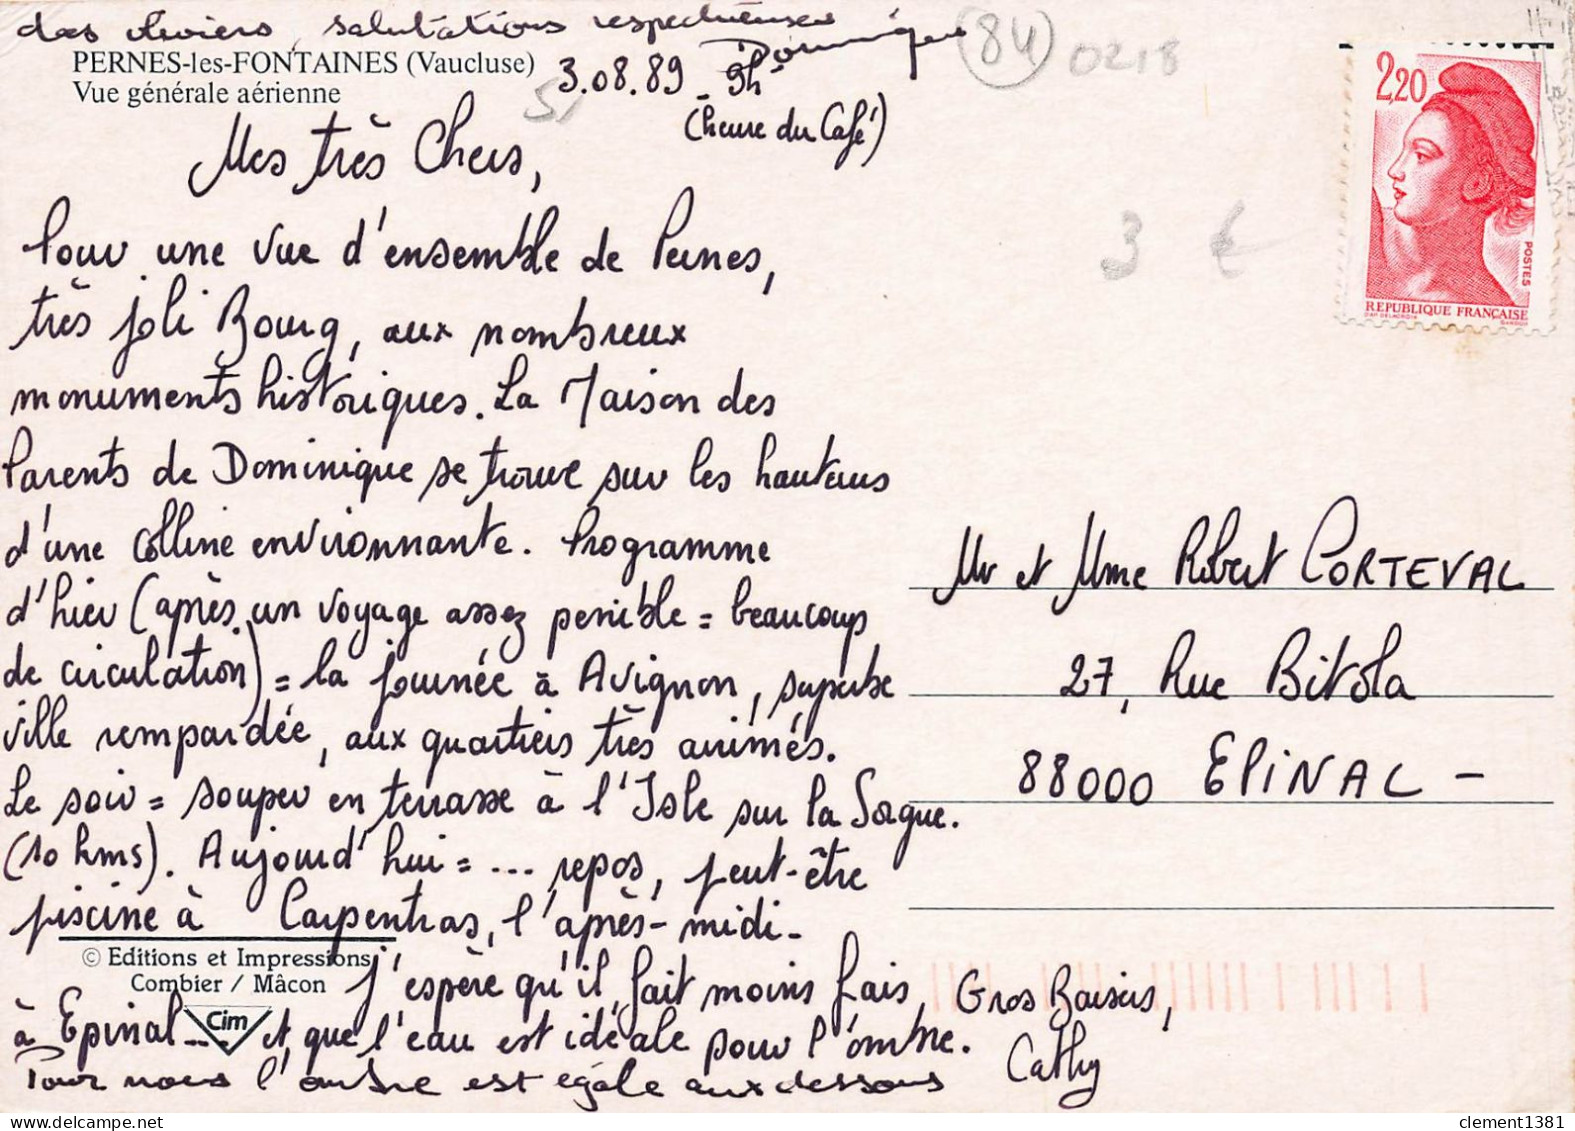 des oliviers, salutations respectueuses
Dominique
PERNES-les-FONTAINES (Vaucluse)
Vue générale aérienne
3.08.89 - 9h -
(heure du Café)
84
0218
5,
3 €
2,20
POSTES
REPUBLIQUE FRANÇAISE
Mes très Chers,
Pour une vue d'ensemble de Pernes,
très joli Bourg, aux nombreux
monuments historiques. La Maison des
Parents de Dominique se trouve sur les hauteurs
d'une colline environnante. Programme
d'hier (après un voyage assez penible = beaucoup
de circulation) = la journée à Avignon, superbe
ville rempardée, aux quartiers très animés.
Le soir = souper en terrasse à l'Isle sur la Sorgue.
(10 kms). Aujourd'hui = ... repos, peut-être
piscine à Carpentras, l'après-midi -
© Editions et Impressions
Combier / Mâcon
Cim
J'espère qu'il fait moins frais
à Epinal .... et que l'eau est idéale pour l'ombre.
Pour nous l'ombre est égale aux dessous
Gros Baisers,
Cathy
Mr et Mme Robert CORTEVAL
27, Rue Bitola
88000 EPINAL -
clement1381